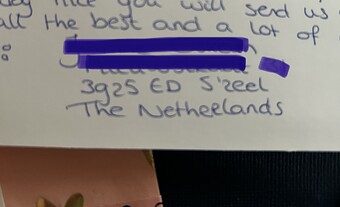 nice you will send us
all the best and a lot of
3925 ED S'zeel
The Netherlands